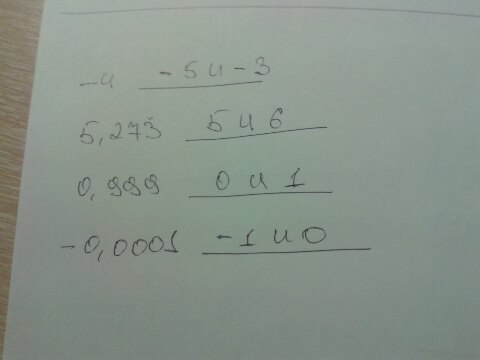 -4 -5 и -3
5,273 5 и 6
0,999 0 и 1
-0,0001 -1 и 0